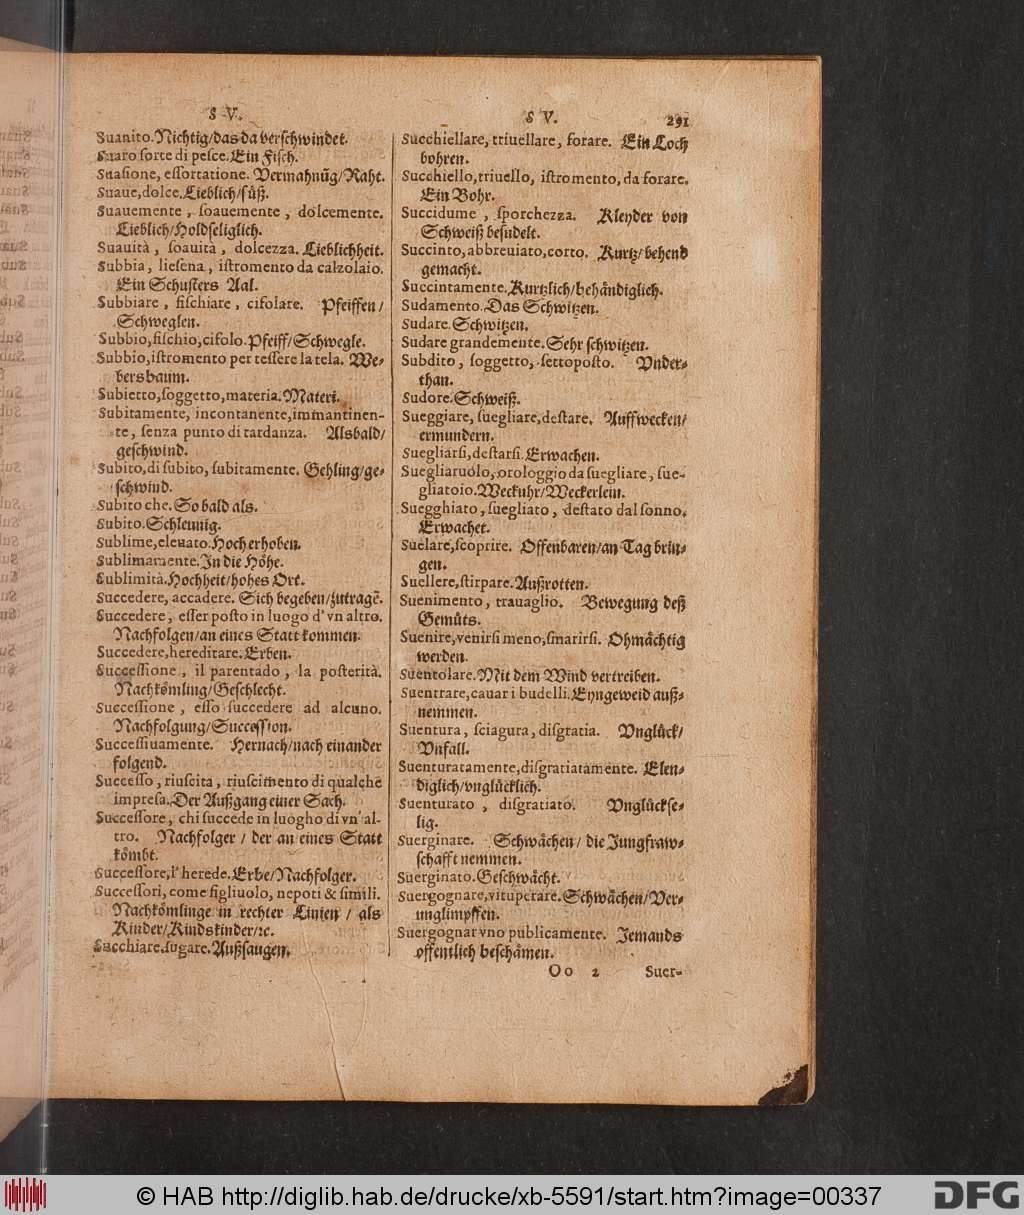 S V.
Suanito. Nichtig/das da verschwindet.
Suaro sorte di pesce. Ein Fisch.
Suasione, essortatione. Vermahnūg/Raht.
Suaue, dolce. Lieblich/süß.
Suauemente, soauemente, dolcemente.
Lieblich/Holdseliglich.
Suauità, soauità, dolcezza. Lieblichheit.
Subbia, liesena, istromento da calzolaio.
Ein Schusters Aal.
Subbiare, fischiare, cifolare. Pfeiffen/
Schweglen.
Subbio, fischio, cifolo. Pfeiff/Schwegle.
Subbio, istromento per tessere la tela. We-
bersbaum.
Subietto, soggetto, materia. Materi.
Subitamente, incontanente, immantinen-
te, senza punto di tardanza. Alsbald/
geschwind.
Subito, di subito, subitamente. Gehling/ge-
schwind.
Subito che. So bald als.
Subito. Schleunig.
Sublime, eleuato. Hoch erhoben.
Sublimamente. In die Höhe.
Sublimità. Hochheit/hohes Ort.
Succedere, accadere. Sich begeben/zutragē.
Succedere, esser posto in luogo d'vn altro.
Nachfolgen/an eines Statt kommen.
Succedere, hereditare. Erben.
Successione, il parentado, la posterità.
Nachkömling/Geschlecht.
Successione, esso succedere ad alcuno.
Nachfolgung/Succession.
Successiuamente. Hernach/nach einander
folgend.
Successo, riuscita, riuscimento di qualche
impresa. Der Außgang einer Sach.
Successore, chi succede in luogho di vn' al-
tro. Nachfolger / der an eines Statt
kömbt.
Successore, l'herede. Erbe/Nachfolger.
Successori, come figliuolo, nepoti & simili.
Nachkömlinge in rechter Linien / als
Kinder/Kindskinder/ꝛc.
Succhiare, sugare. Außsaugen.
S V. 291
Succhiellare, triuellare, forare. Ein Loch
bohren.
Succhiello, triuello, istromento, da forare.
Ein Bohr.
Succidume, sporchezza. Kleyder von
Schweiß besudelt.
Succinto, abbreuiato, corto. Kurtz/behend
gemacht.
Succintamente. Kurtzlich/behändiglich.
Sudamento. Das Schwitzen.
Sudare. Schwitzen.
Sudare grandemente. Sehr schwitzen.
Subdito, soggetto, settoposto. Vnder-
than.
Sudore. Schweiß.
Sueggiare, suegliare, destare. Auffwecken/
ermundern.
Suegliarsi, destarsi. Erwachen.
Suegliaruolo, orologgio da suegliare, sue-
gliatoio. Weckuhr/Weckerlein.
Suegghiato, suegliato, destato dal sonno.
Erwachet.
Suelare, scoprire. Offenbaren/an Tag brin-
gen.
Suellere, stirpare. Außrotten.
Suenimento, trauaglio. Bewegung deß
Gemüts.
Suenire, venirsi meno, smarirsi. Ohmächtig
werden.
Suentolare. Mit dem Wind vertreiben.
Suentrare, cauar i budelli. Eyngeweid auß-
nemmen.
Suentura, sciagura, disgratia. Vnglück/
Vnfall.
Suenturatamente, disgratiatamente. Elen-
diglich/vnglücklich.
Suenturato, disgratiato. Vnglückse-
lig.
Suerginare. Schwächen/ die Jungfraw-
schafft nemmen.
Suerginato. Geschwächt.
Suergognare, vituperare. Schwächen/Ver-
unglimpffen.
Suergognar vno publicamente. Jemands
offentlich beschämen.
Oo 2 Suer-
© HAB http://diglib.hab.de/drucke/xb-5591/start.htm?image=00337
DFG